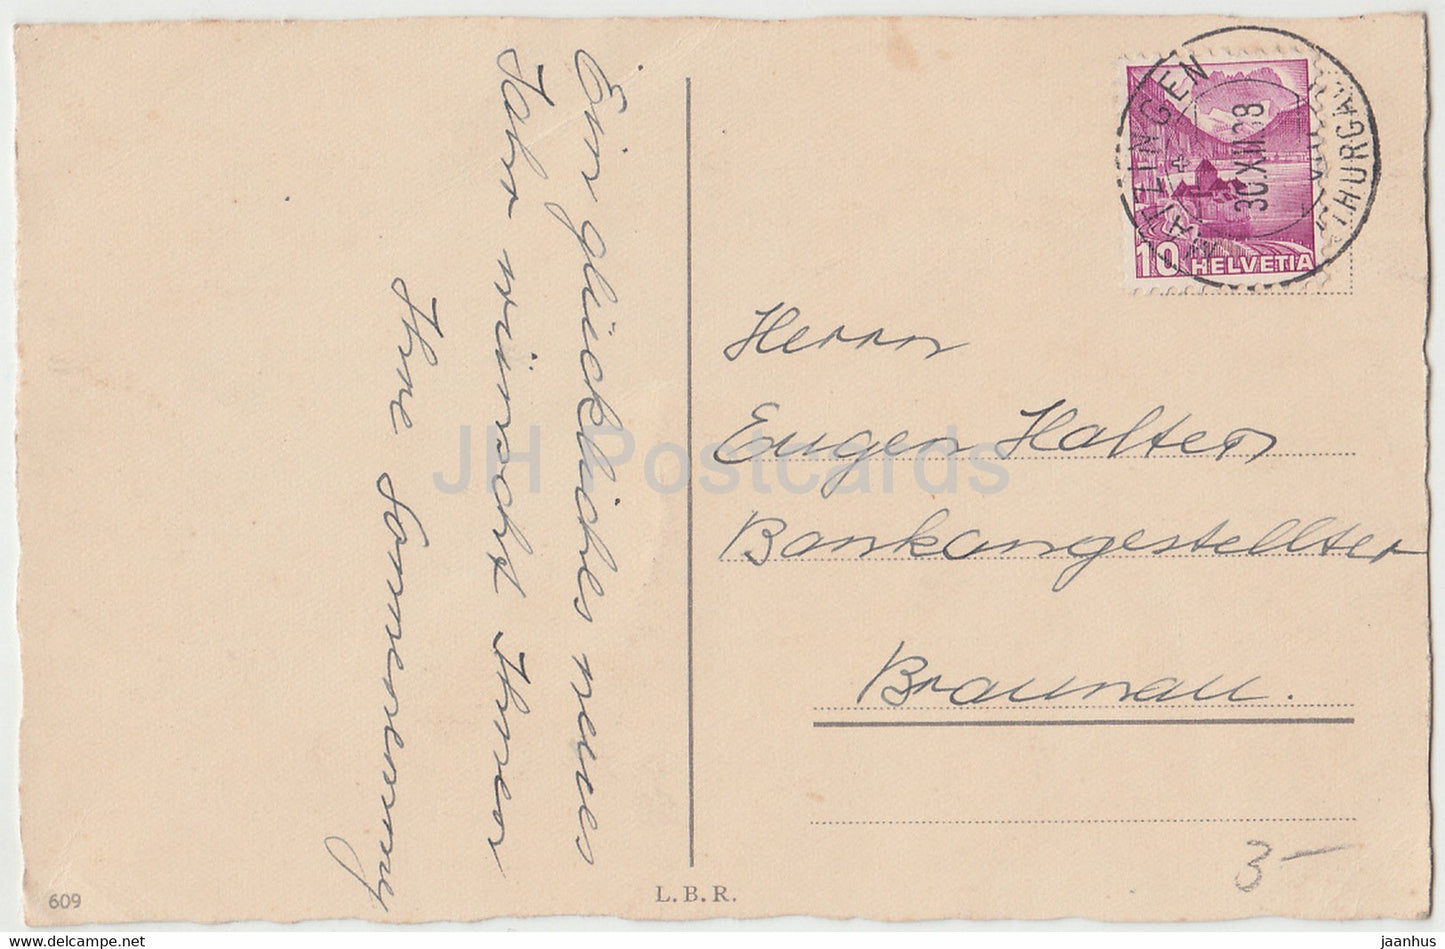 Ein glückliches neues
Jahr wünscht Ihnen
Ihre
MATZINGEN
30.XII.38
THURGAU
10 HELVETIA
Herrn
Eugen Halter
Bankangestellter
Braunau.
3-
609
L.B.R.
JH Postcards
jaanhus
www.jhpostcards.com